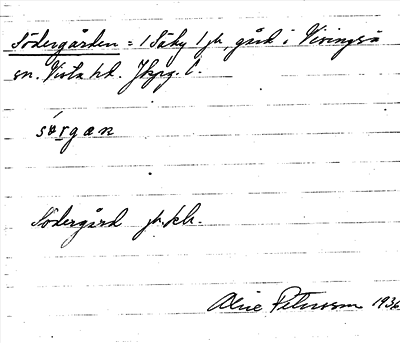 Södergården = 1 Säby 1 jb, gård i Visingsö
sn. Vista hd. Jkpg. l.
sörgæn
Södergård jb. kb.
Alice Petersson 1936